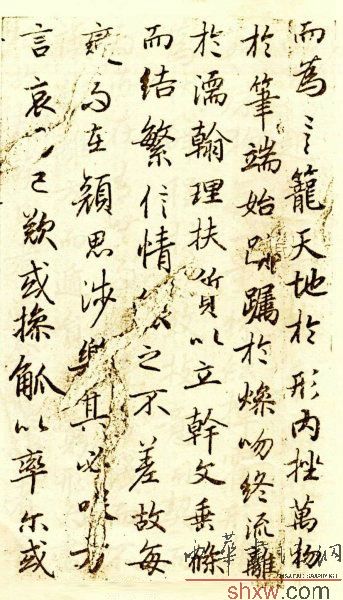 而為言籠天地於形內挫萬物
於筆端始躑躅於燥吻終流離
於濡翰理扶質以立幹文垂條
而結繁信情之不差故每
變而在顏思涉樂其必笑方
言哀已歎或操觚以率尔或
shxw.com